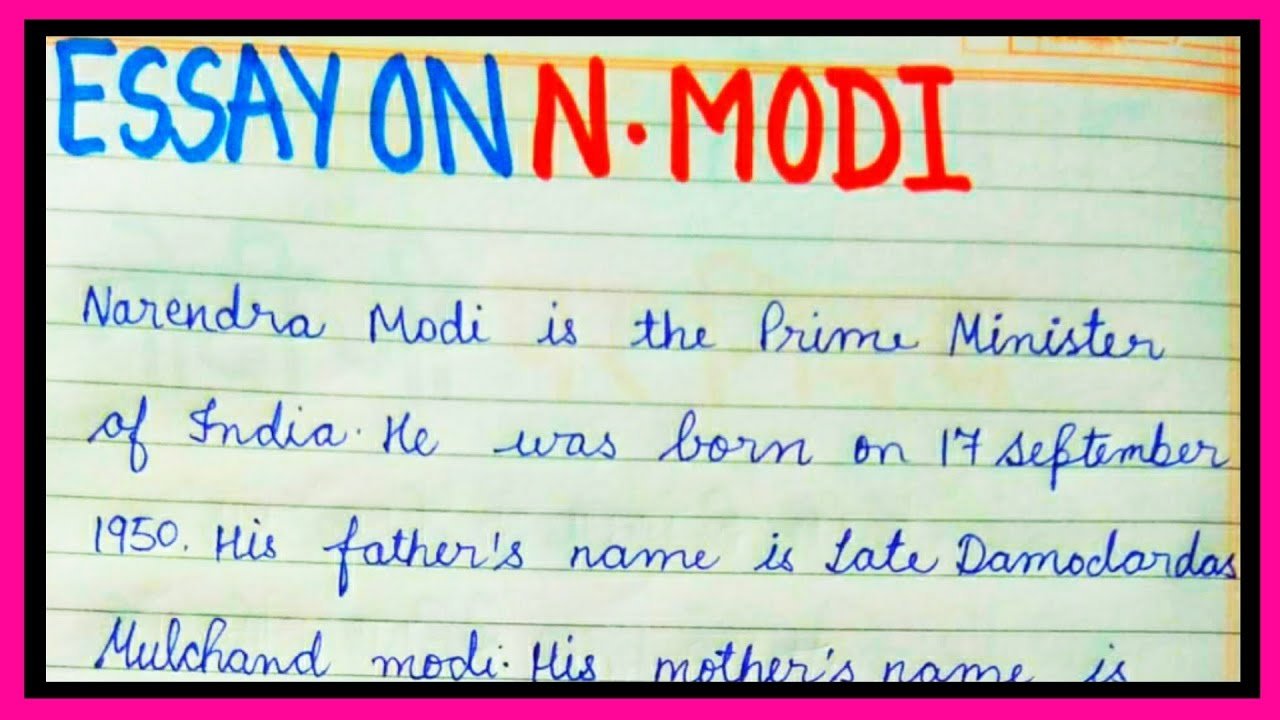 ESSAY ON N. MODI
Narendra Modi is the Prime Minister
of India. He was born on 17 september
1950. His father's name is Late Damodardas
Mulchand modi. His mother's name is